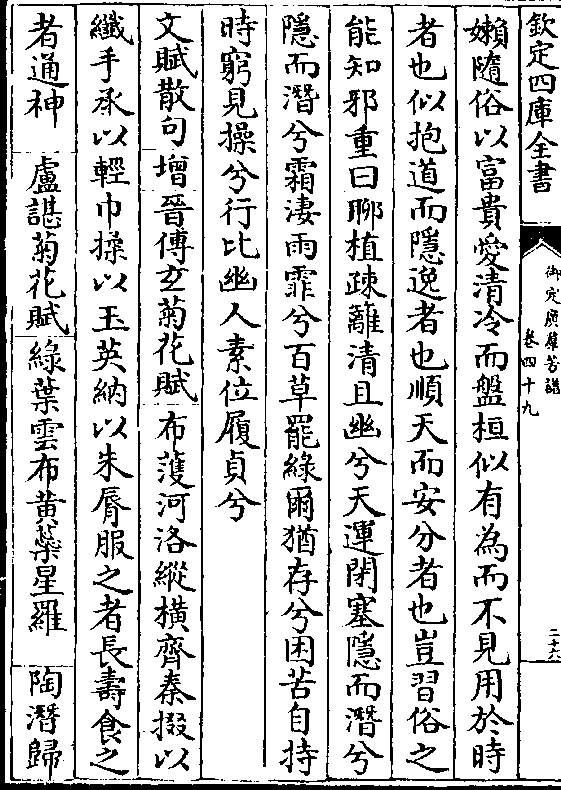 欽定四庫全書
御定廣羣芳譜
卷四十九
二十六
嬾隨俗以富貴愛清冷而盤桓似有為而不見用於時
者也似抱道而隱逸者也順天而安分者也豈習俗之
能知邪重曰聊植疎籬清且幽兮天運閉塞隱而潛兮
隱而潛兮霜淒雨霏兮百草罷綠爾猶存兮困苦自持
時窮見操兮行比幽人素位履貞兮
文賦散句增晉傅玄菊花賦 布濩河洛縱橫齊秦掇以
纖手承以輕巾揉以玉英納以朱脣服之者長壽食之
者通神 盧諶菊花賦 綠葉雲布黃蘂星羅 陶潛歸